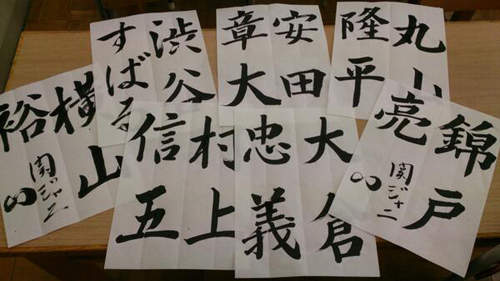 渋谷
すばる
安田
章大
丸山
隆平
横山
裕
関ジャニ
∞
村上
信五
大倉
忠義
錦戸
亮
関ジャニ
∞